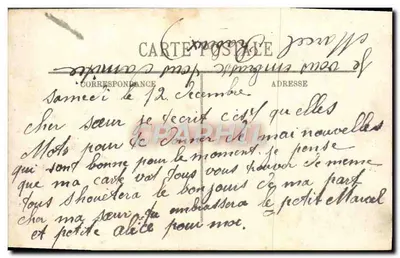 CARTE POSTALE
CORRESPONDANCE ADRESSE
Je vous embrasse tous
Marcel
samedi le 12 Decembre
cher sœur je tecrit cest quelles
Mots pour te donner de mai nouvelles
qui sont bonne pour le moment je pense
que ma carte vas tous vous trouver de meme
tous shouetera le bonjours de ma part
cher ma sœur tu embrassera le petit Marcel
et petite alice pour moi.